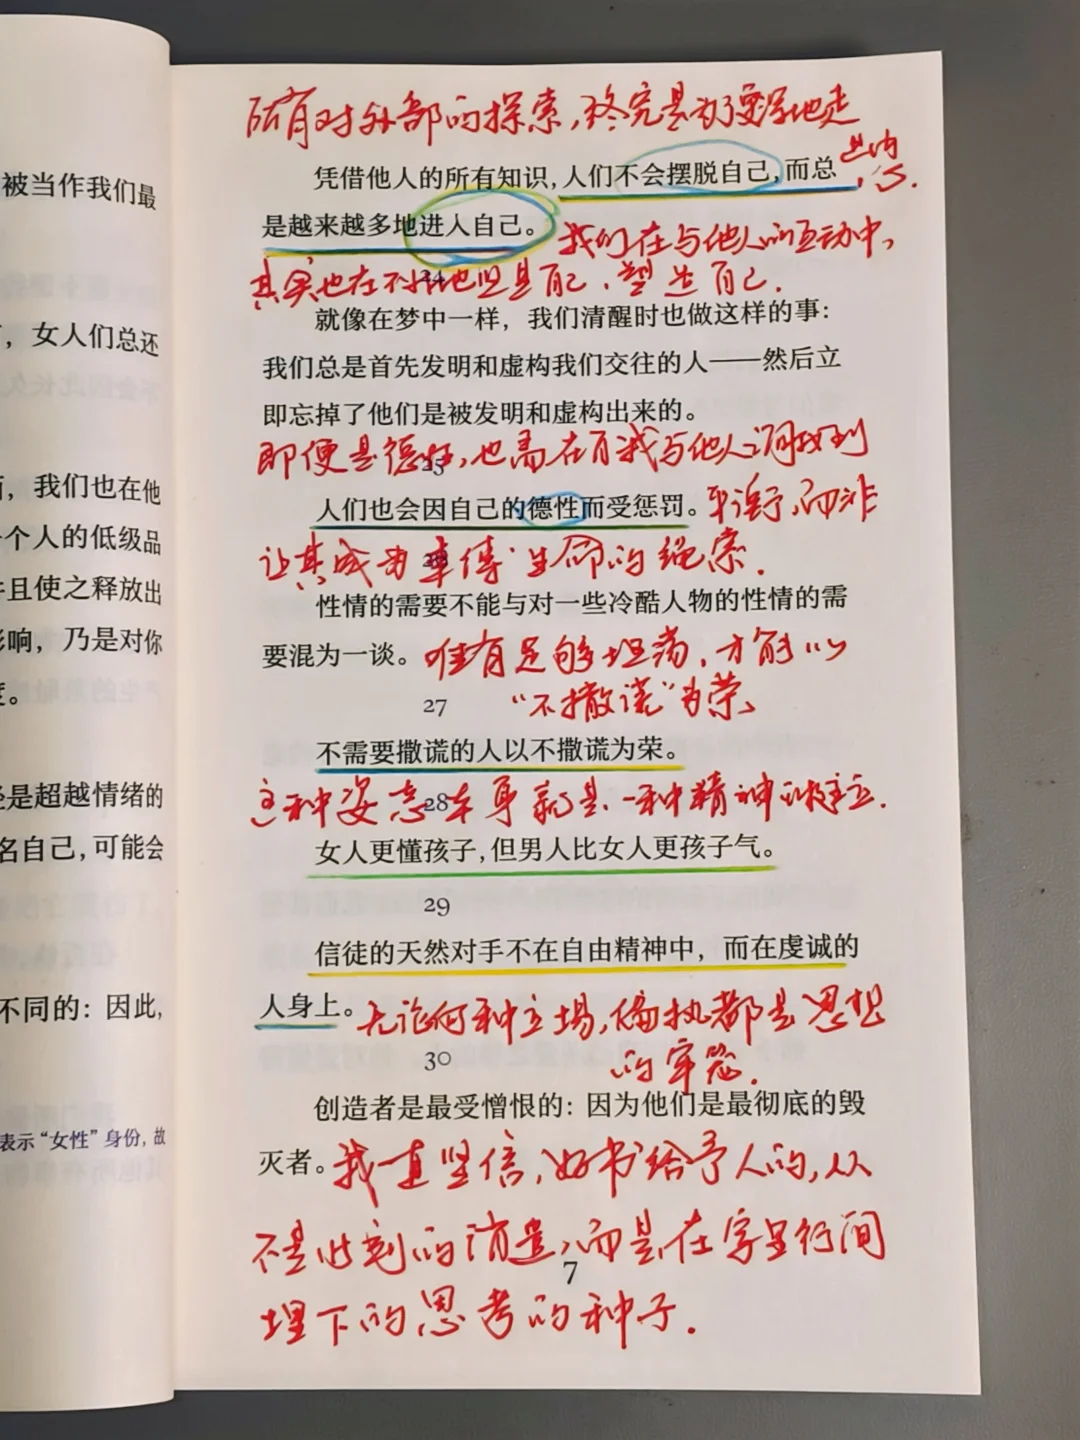 被当作我们最
，女人们总还
，我们也在他
个人的低级品
且使之释放出
影响，乃是对你
度。
是超越情绪的
名自己，可能会
不同的：因此，
表示“女性”身份，故
所有对外部的探索，终究是为了更深地走
进内心.
凭借他人的所有知识，人们不会摆脱自己，而总
是越来越多地进入自己。
我们在与他人的互动中，
24
其实也在不断地照见自己、塑造自己.
就像在梦中一样，我们清醒时也做这样的事：
我们总是首先发明和虚构我们交往的人——然后立
即忘掉了他们是被发明和虚构出来的。
即便是德性，也需在自我与他人之间找到
25
人们也会因自己的德性而受惩罚。
平衡，而非
让其成为牵缚生命的绳索.
26
性情的需要不能与对一些冷酷人物的性情的需
要混为一谈。
唯有足够坦荡，才能以
27
“不撒谎”为荣，
不需要撒谎的人以不撒谎为荣。
这种姿态本身就是一种精神的挺立.
28
女人更懂孩子，但男人比女人更孩子气。
29
信徒的天然对手不在自由精神中，而在虔诚的
人身上。
无论何种立场，偏执都是思想
30
的牢笼.
创造者是最受憎恨的：因为他们是最彻底的毁
灭者。
我一直坚信，好书给予人的，从
不是此刻的消遣，而是在字里行间
7
埋下的思考的种子.